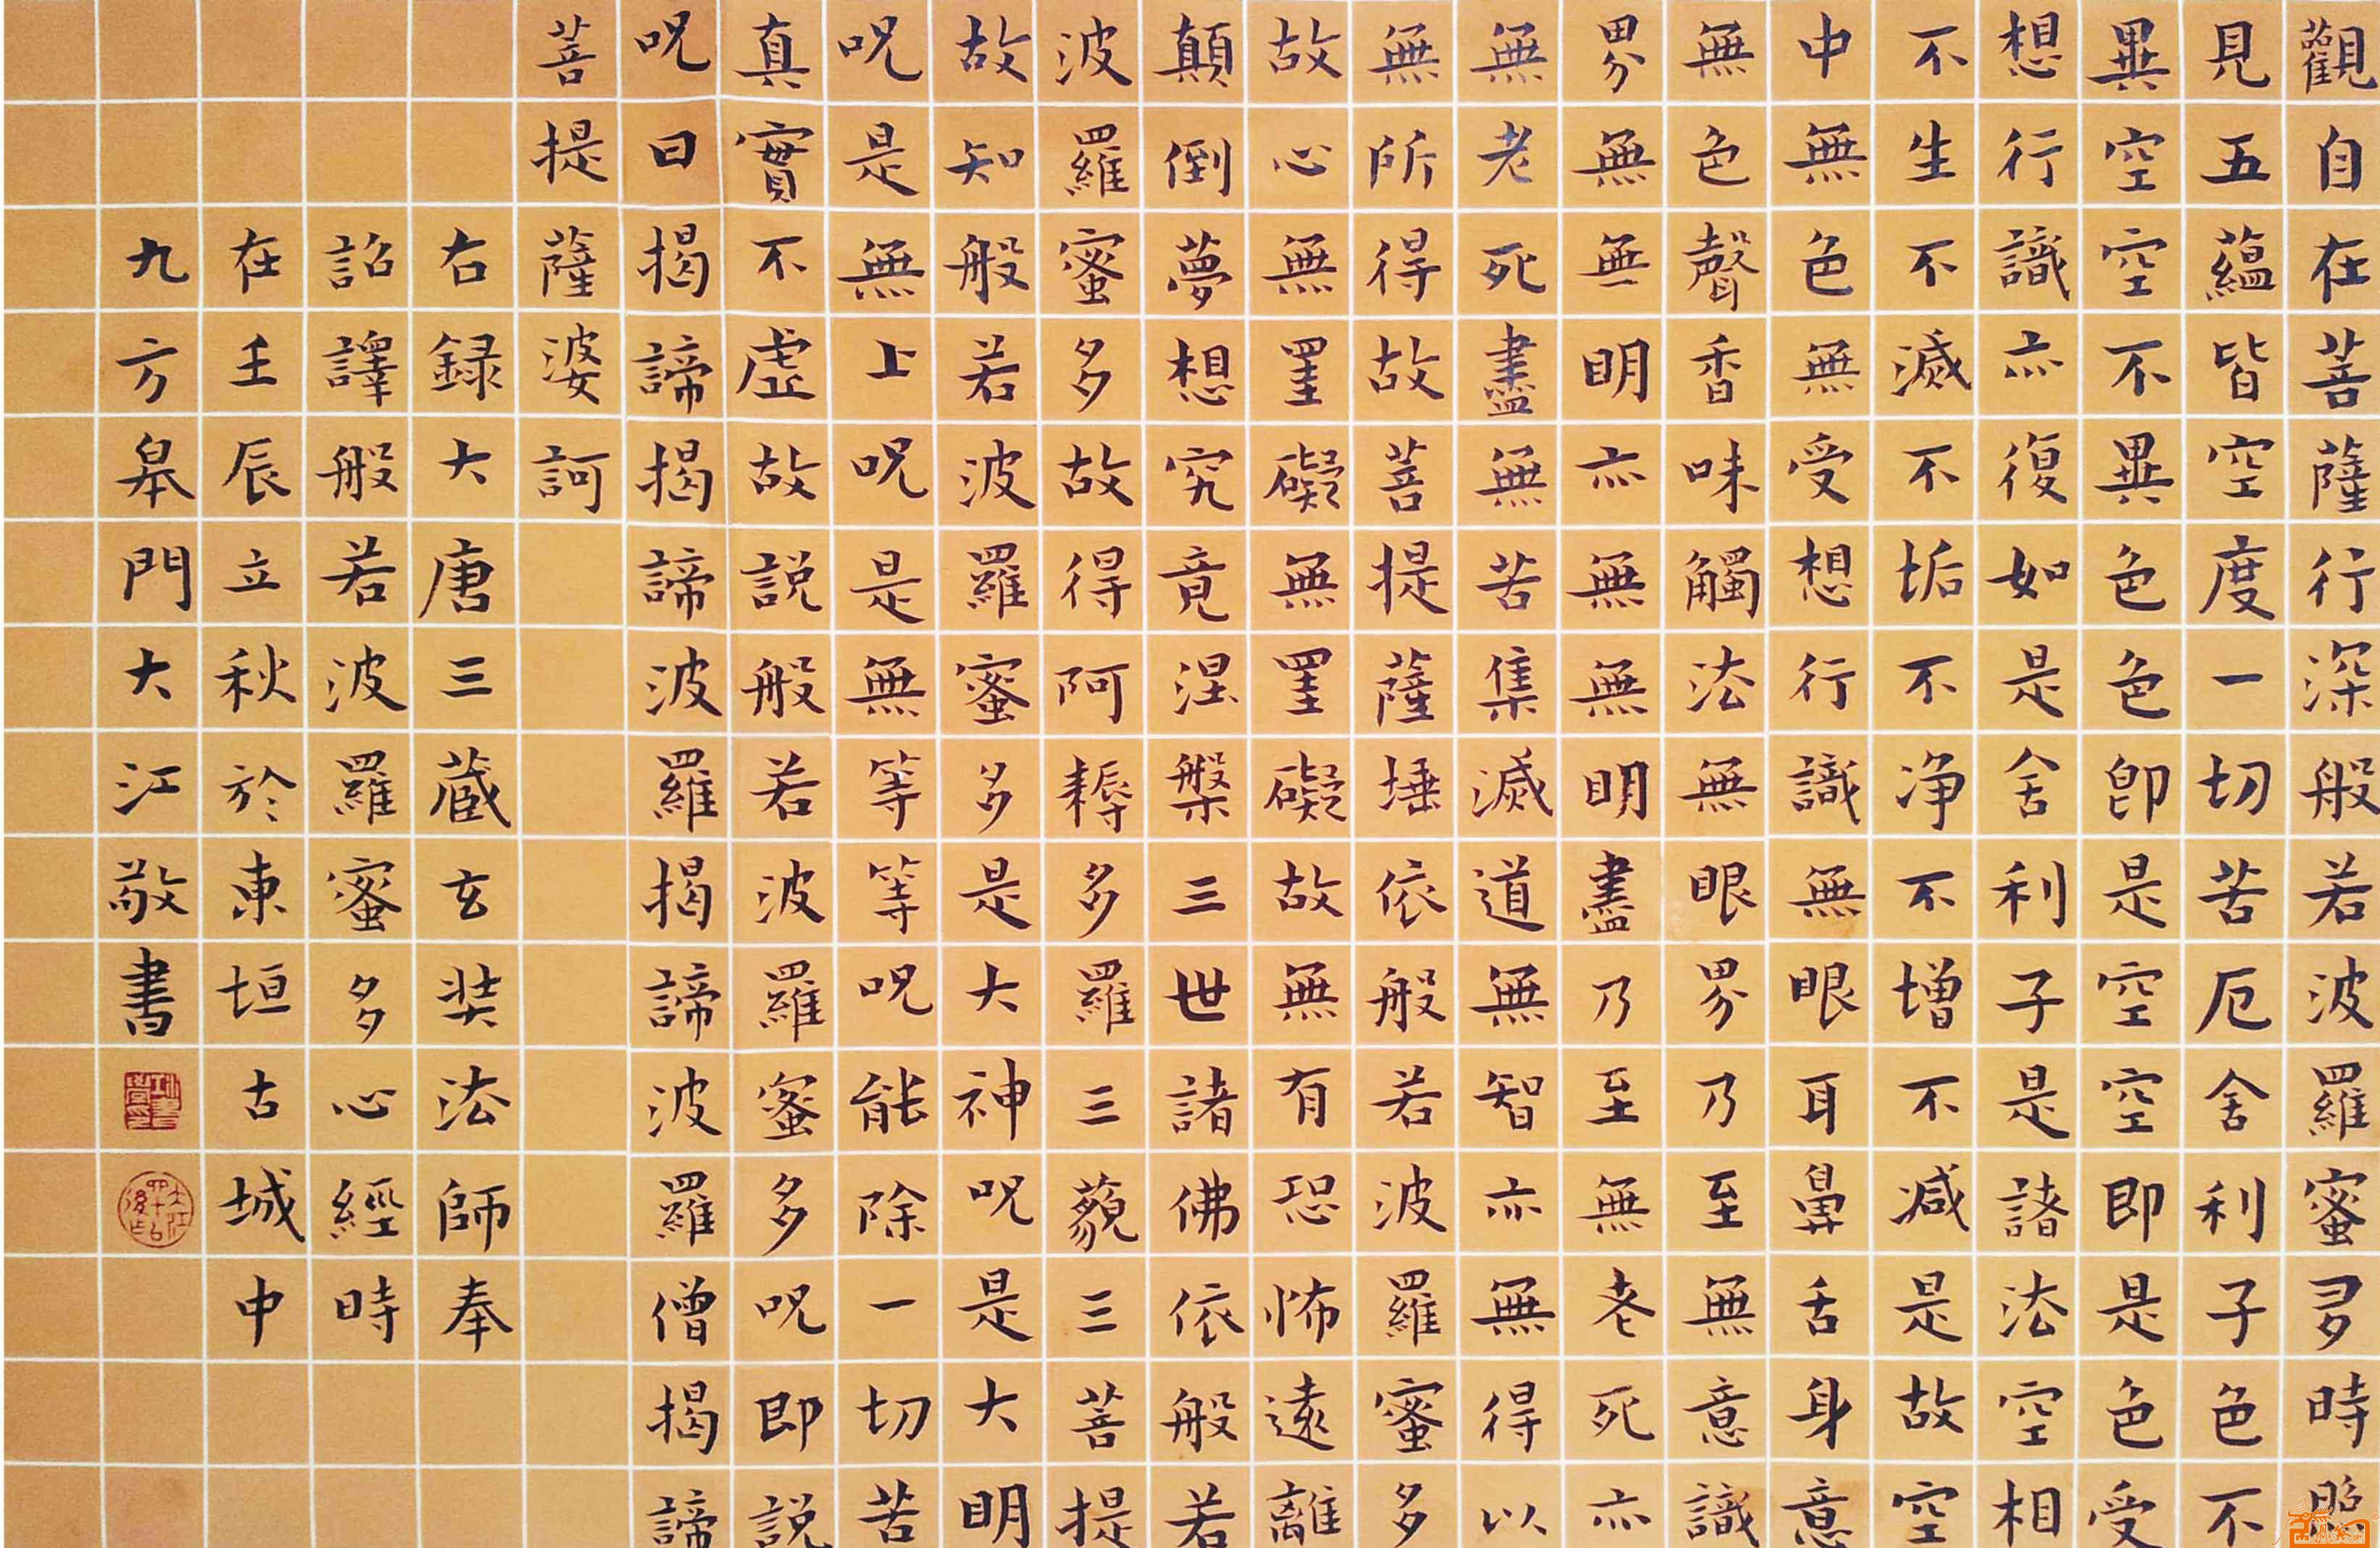 觀自在菩薩行深般若波羅蜜多時照
見五蘊皆空度一切苦厄舍利子色不
異空空不異色色即是空空即是色受
想行識亦復如是舍利子是諸法空相
不生不滅不垢不净不增不減是故空
中無色無受想行識無眼耳鼻舌身意
無色聲香味觸法無眼界乃至無意識
界無無明亦無無明盡乃至無老死亦
無老死盡無苦集滅道無智亦無得以
無所得故菩提薩埵依般若波羅蜜多
故心無罣礙無罣礙故無有恐怖遠離
顛倒夢想究竟涅槃三世諸佛依般若
波羅蜜多故得阿耨多羅三藐三菩提
故知般若波羅蜜多是大神呪是大明
呪是無上呪是無等等呪能除一切苦
真實不虛故説般若波羅蜜多呪即説
呪曰揭諦揭諦波羅揭諦波羅僧揭諦
菩提薩婆訶
右録大唐三藏玄奘法師奉
詔譯般若波羅蜜多心經時
在壬辰立秋於東垣古城中
九方皋門大江敬書